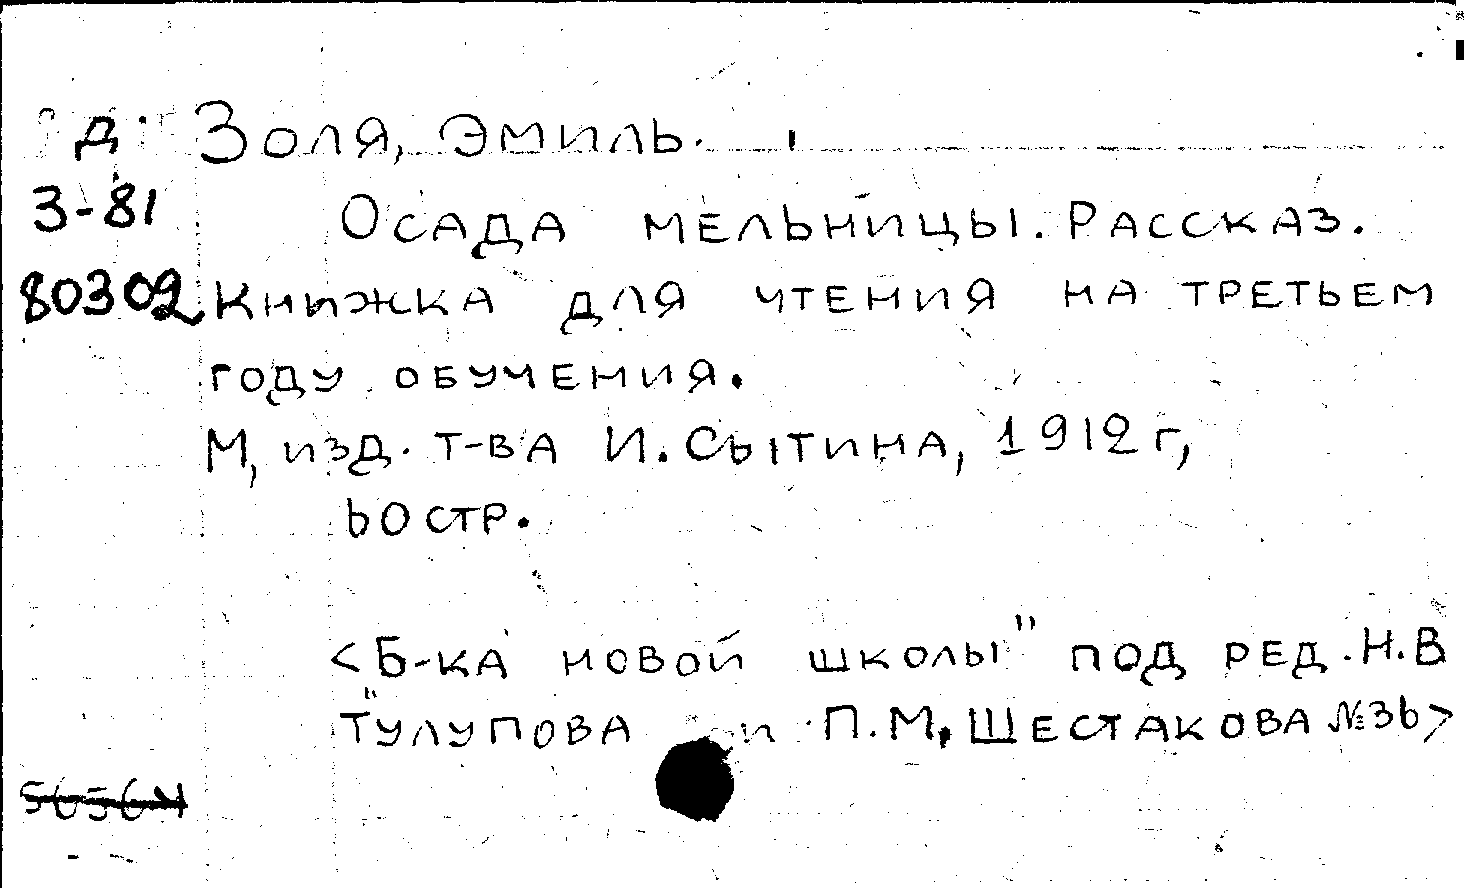 Д. Золя, Эмиль.
З-81 Осада мельницы. Рассказ.
80302 Книжка для чтения на третьем
году обучения.
М, изд. т-ва И. Сытина, 1912 г,
60 стр.
<Б-ка новой школы" под ред. Н.В
"Тулупова и П.М. Шестакова №36>